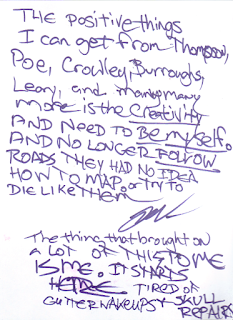 THE positive things
I can get from Thompson,
Poe, Crowley, Burroughs,
Leary, and many many
more is the Creativity
AND NEED to BE myself.
AND NO LONGER FOLLOW
ROADS THEY HAD NO IDEA
HOW TO MAP. or TRY TO
DIE LIKE THEM
The thing that brought on
A LOT OF THIS TO ME
IS ME. IT STARTS
HERE TIRED OF
GUTTER WAKEUPS & SKULL
REPAIRS